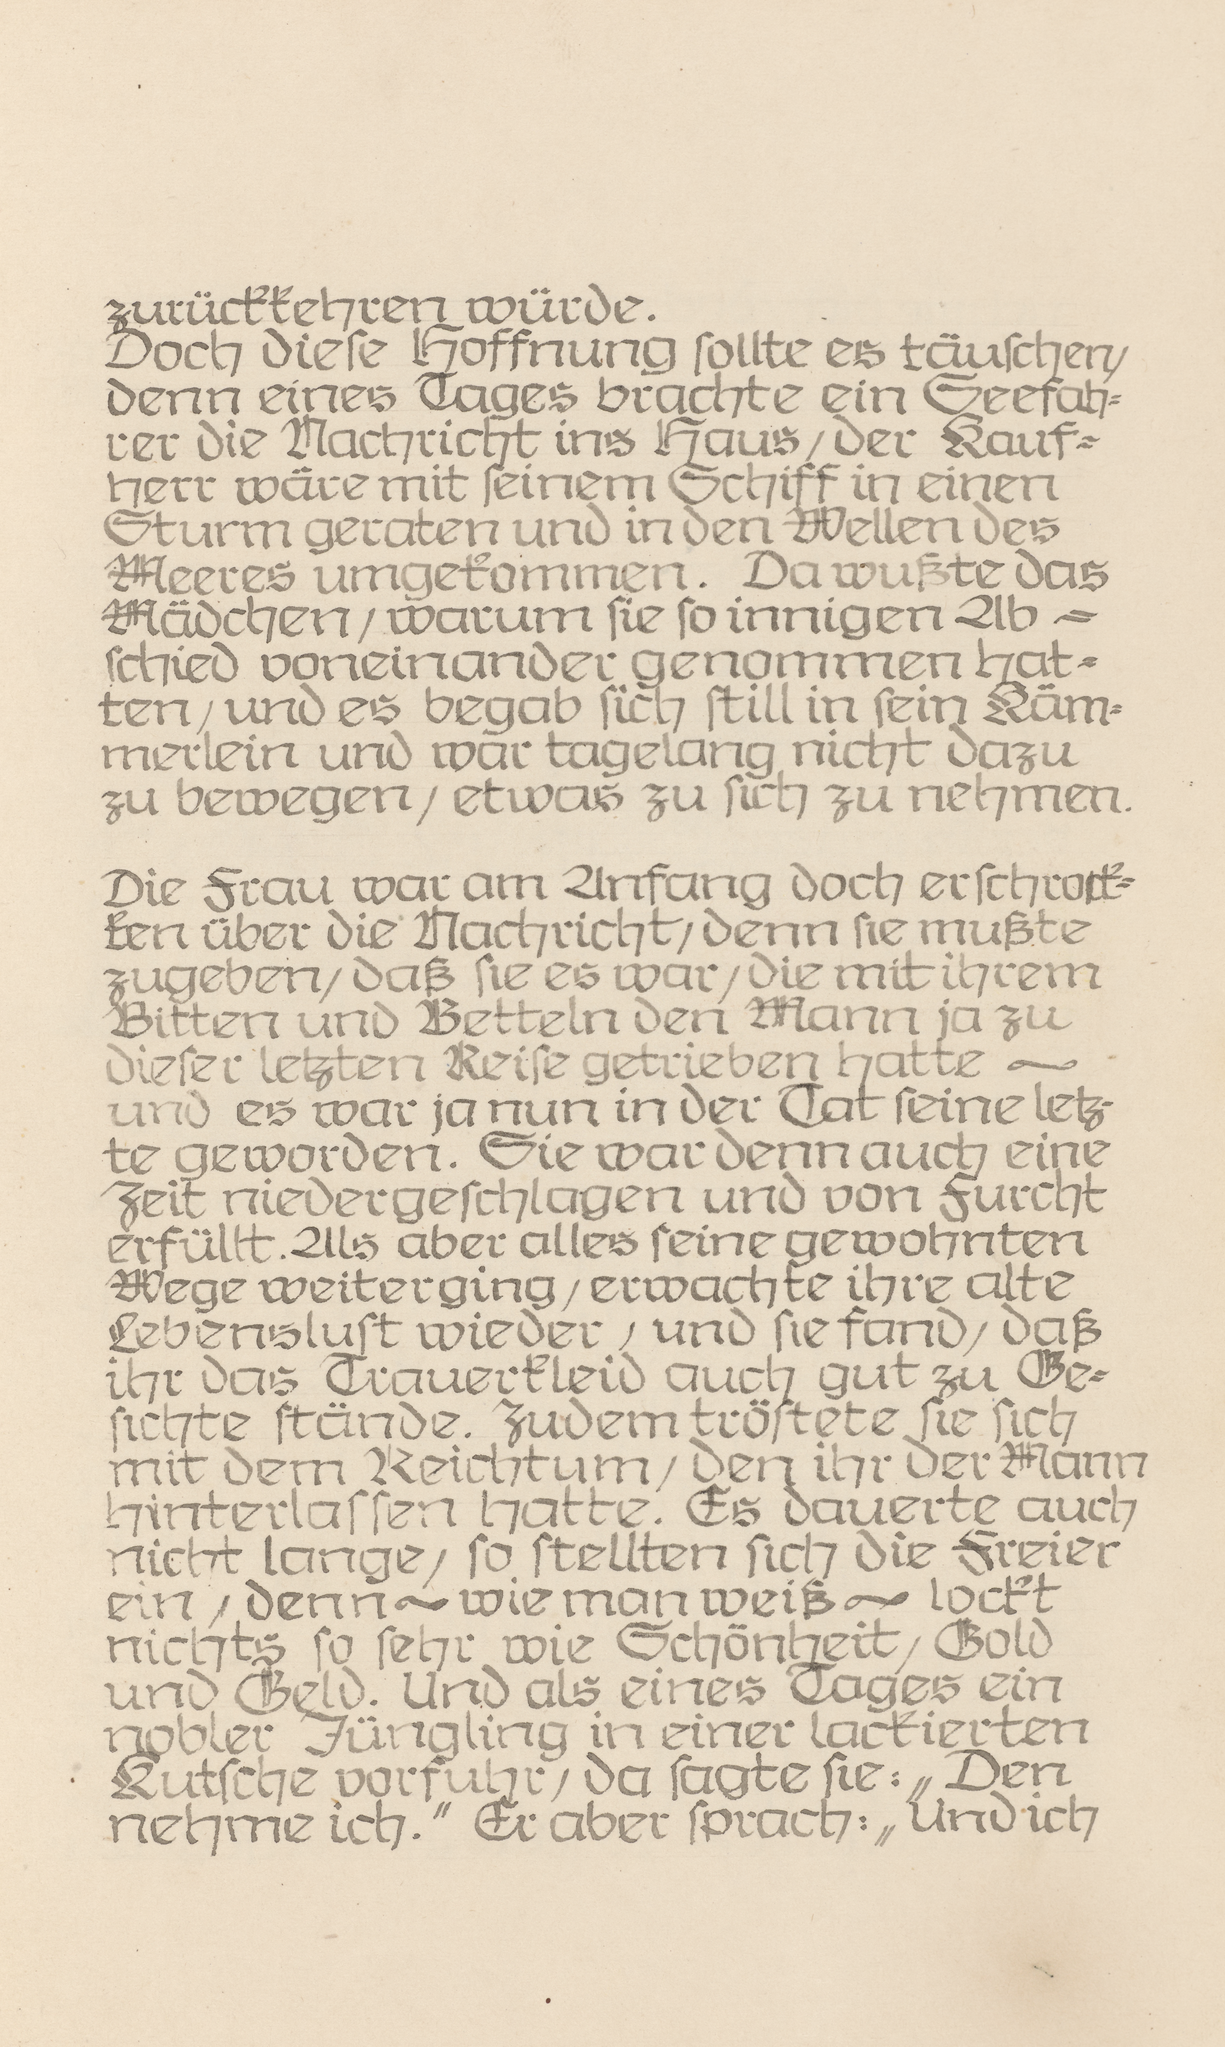 zurückkehren würde.
Doch diese Hoffnung sollte es täuschen/
denn eines Tages brachte ein Seefah=
rer die Nachricht ins Haus/ der Kauf=
herr wäre mit seinem Schiff in einen
Sturm geraten und in den Wellen des
Meeres umgekommen. Da wußte das
Mädchen/ warum sie so innigen Ab=
schied voneinander genommen hat=
ten/ und es begab sich still in sein Käm=
merlein und war tagelang nicht dazu
zu bewegen/ etwas zu sich zu nehmen.
Die Frau war am Anfang doch erschrock=
ken über die Nachricht/ denn sie mußte
zugeben/ daß sie es war/ die mit ihrem
Bitten und Betteln den Mann ja zu
dieser letzten Reise getrieben hatte ~
und es war ja nun in der Tat seine letz=
te geworden. Sie war denn auch eine
Zeit niedergeschlagen und von Furcht
erfüllt. Als aber alles seine gewohnten
Wege weiterging/ erwachte ihre alte
Lebenslust wieder/ und sie fand/ daß
ihr das Trauerkleid auch gut zu Ge=
sichte stände. Zudem tröstete sie sich
mit dem Reichtum/ den ihr der Mann
hinterlassen hatte. Es dauerte auch
nicht lange/ so stellten sich die Freier
ein/ denn ~ wie man weiß ~ lockt
nichts so sehr wie Schönheit/ Gold
und Geld. Und als eines Tages ein
nobler Jüngling in einer lackierten
Kutsche vorfuhr/ da sagte sie: „Den
nehme ich.“ Er aber sprach: „Und ich